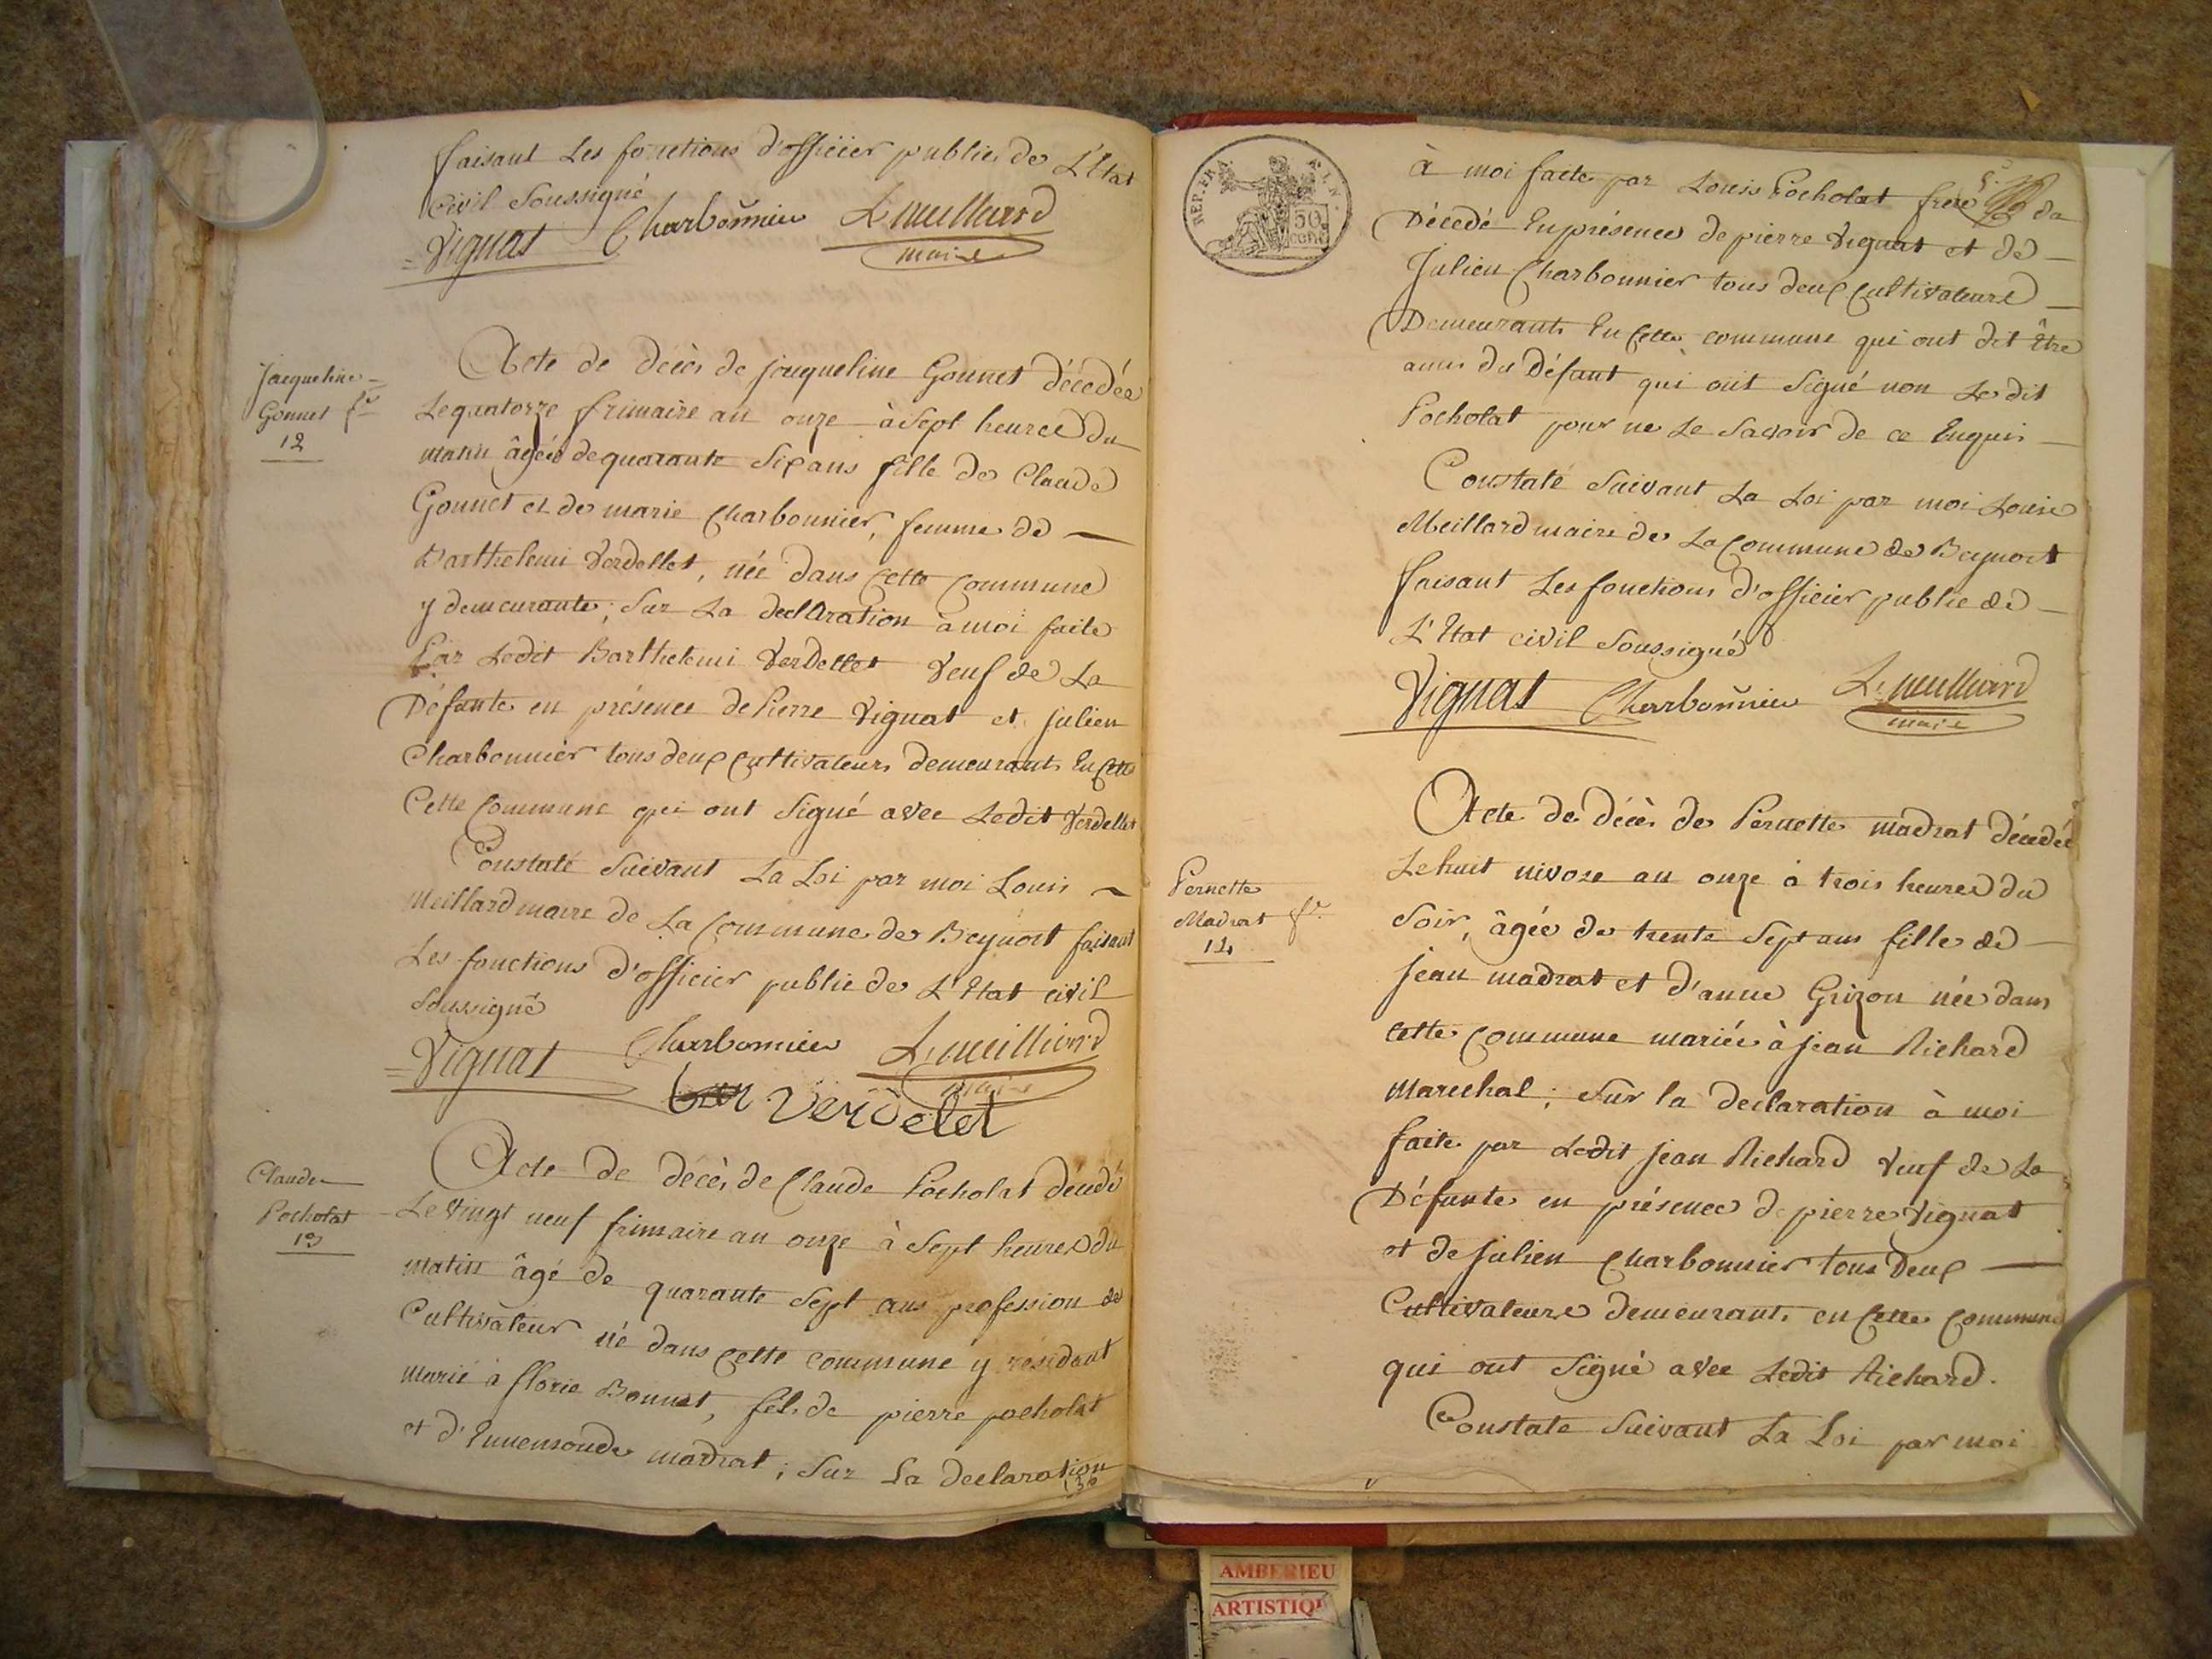 faisant Les fonctions d'officier public de L'Etat
Civil Soussigné
Vignat Charbonnier L. meilliard
maire
Jacqueline
Gonnet fe
12
Acte de décès de jacqueline Gonnet décédée
Le quatorze frimaire an onze à Sept heures du
matin âgée de quarante Six ans fille de Claude
Gonnet et de marie Charbonnier, femme de
Barthelemi Verdellet, née dans Cette Commune
y demeurante; Sur La declaration à moi faite
Par Ledit Barthelemi Verdellet Veuf de La
Défunte en présence de Pierre Vignat et julien
Charbonnier tous deux Cultivateurs demeurants En Cette
Cette Commune qui ont Signé avec Ledit Verdellet
Constaté Suivant La Loi par moi Louis
Meillard maire de La Commune de Beynost faisant
Les fonctions d'officier public de L'Etat civil
Soussigné
Vignat Charbonnier L. meilliard
maire
Verdelet
Claude
Pocholat
13
Acte de décès de Claude Pocholat décédé
Le Vingt neuf frimaire an onze à Sept heures du
matin âgé de quarante Sept ans profession de
Cultivateur né dans Cette commune y résidant
marié à florie Bonnet, fils de pierre pocholat
et d'Ennemonde madrat; Sur La declaration
REP. FRA.
50
CENT.
à moi faite par Louis Pocholat frere du
Décedé En présence de pierre Vignat et de
Julien Charbonnier tous deux Cultivateurs
Demeurants En Cette commune qui ont dit Être
amis du Défunt qui ont Signé non Le dit
Pocholat pour ne Le Savoir de ce Enquis
Constaté Suivant La Loi par moi Louis
Meillard maire de La Commune de Beynost
faisant Les fonctions d'officier public de
L'Etat civil Soussigné
Vignat Charbonnier L. meilliard
maire
Pernette
Madrat fe
14
Acte de décès de Pernette madrat décedée
Le huit nivose an onze à trois heures du
Soir, âgée de trente Sept ans fille de
jean madrat et d'anne Grizon née dans
cette Commune mariée à jean Richard
Marechal; Sur la declaration à moi
faite par Ledit jean Richard Veuf de La
Défunte en présence de pierre Vignat
et de julien Charbonnier tous deux
Cultivateurs demeurants en Cette Commune
qui ont Signé avec Ledit Richard.
Constaté Suivant La Loi par moi
AMBERIEU
ARTISTIQU